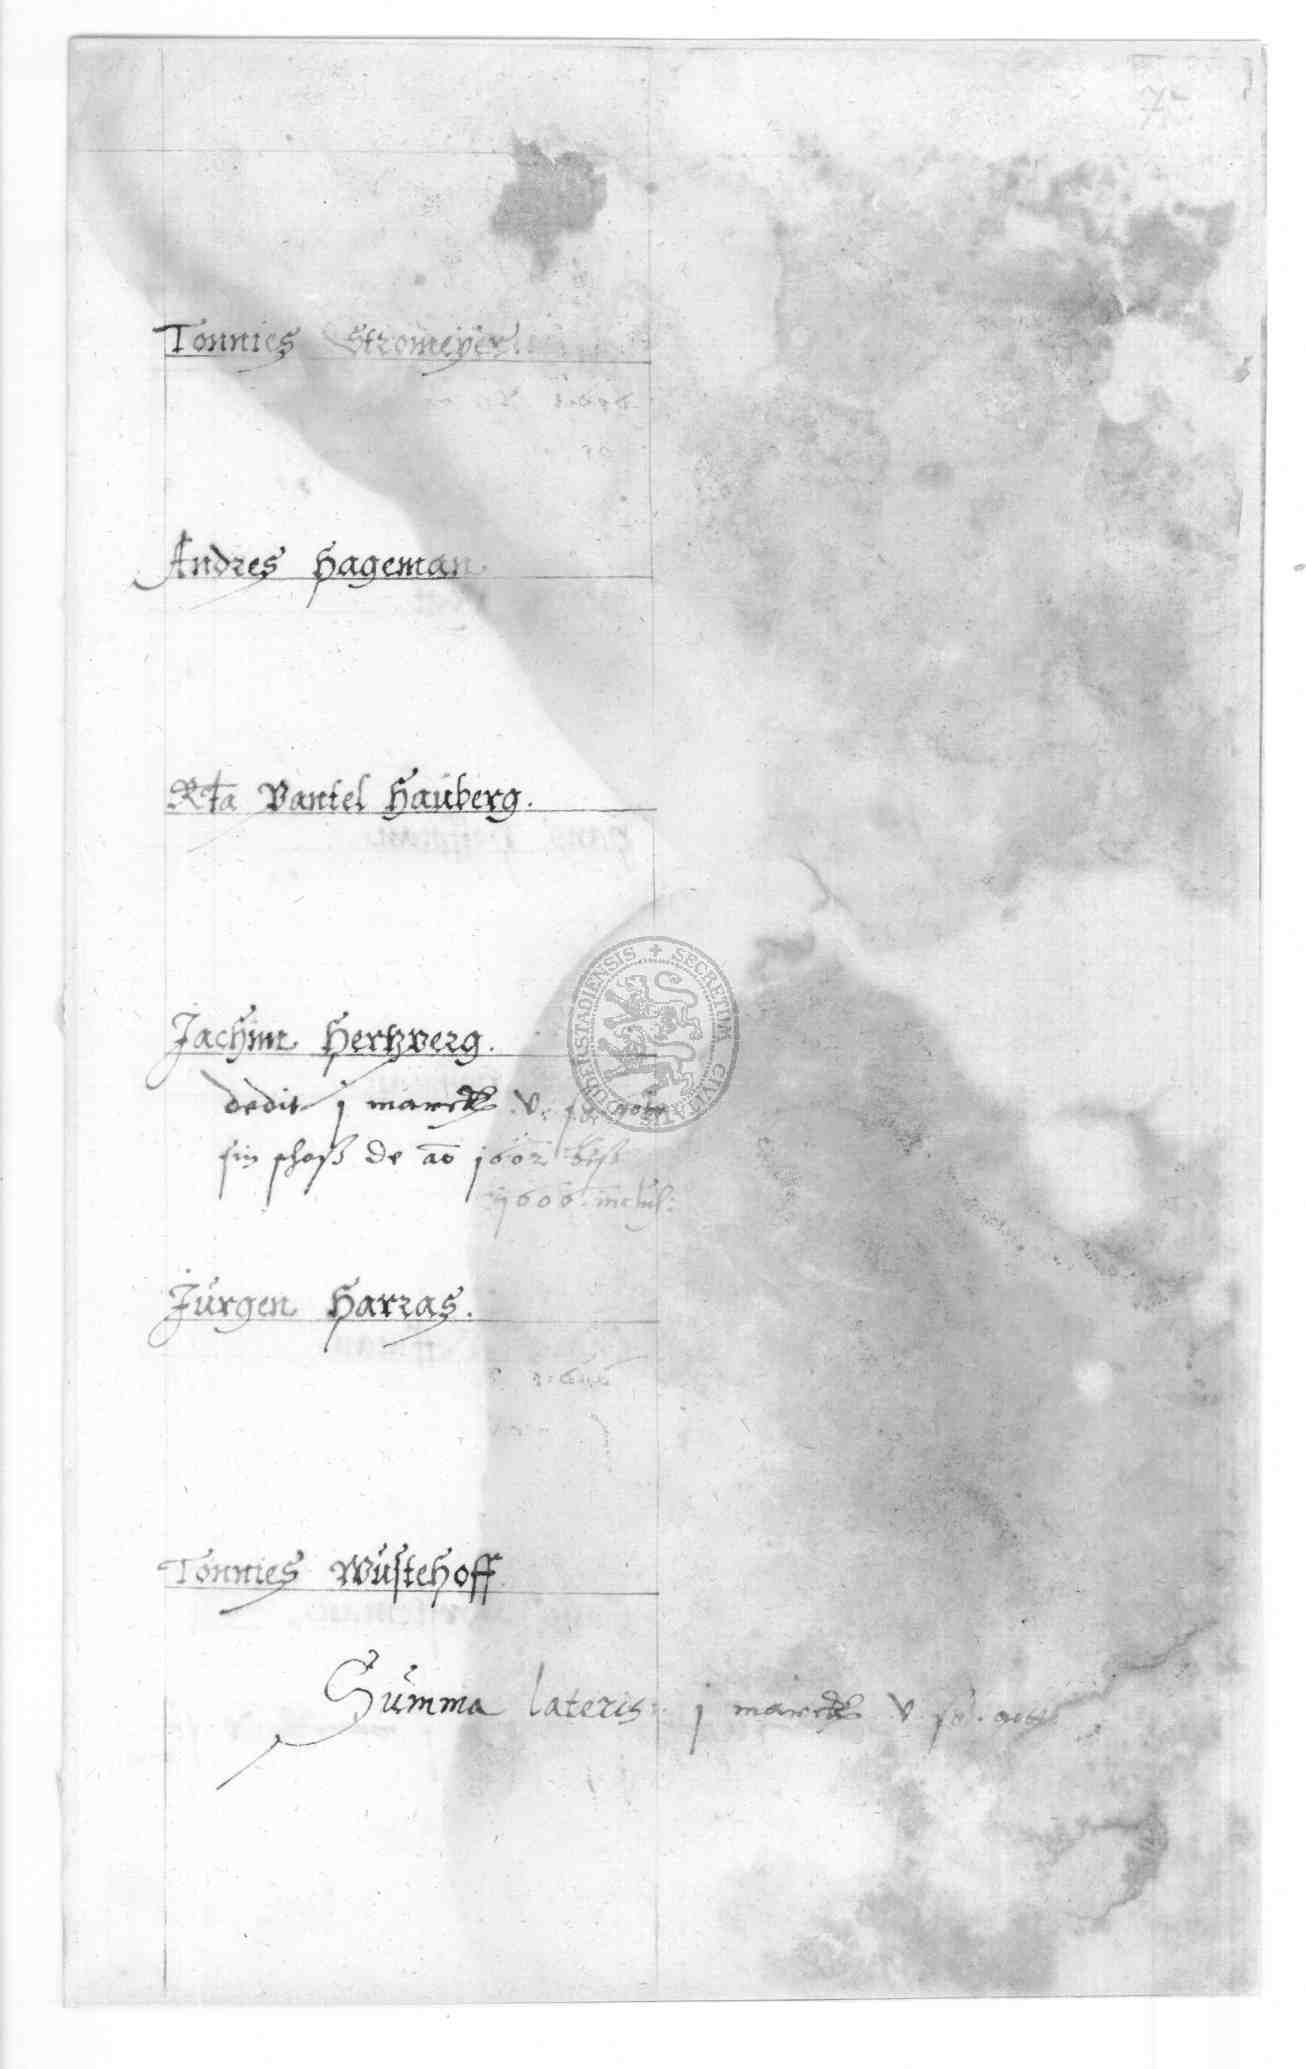 75
Tonnies Stromeyer
Andres Hageman
Rta Bantel Hauberg.
Jachim Hertzberg.
dedit j marck v
sin schoß de ao 1602 biß
1606. inclus:
Jürgen Harras.
Tönnies Wüstehoff
Summa lateris: j marck v
SECRETUM CIVITATIS DUDERSTADIENSIS